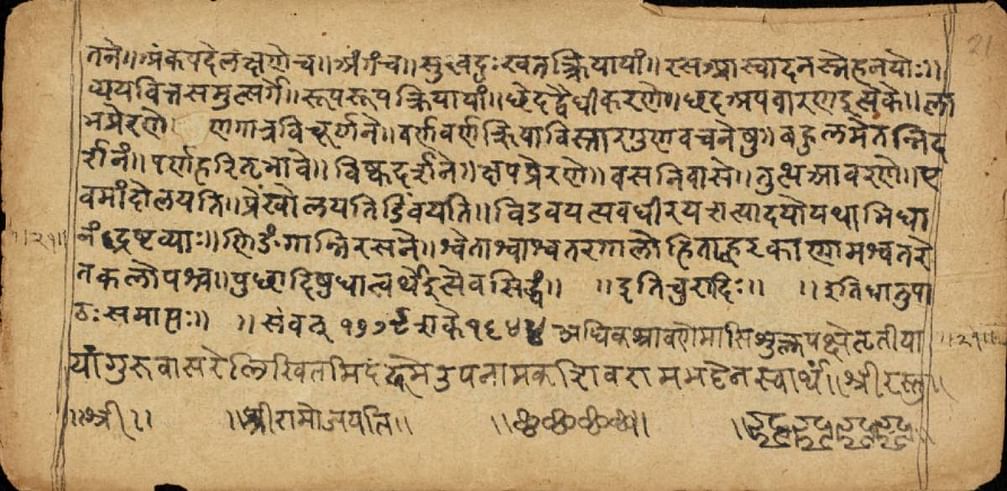 तने॥ अंकपदेलक्षणेच॥ अंगंच॥ सुखदुःखतत्क्रियायां॥ रसआस्वादनस्नेहनयोः॥
व्ययवित्तसमुत्सर्गे॥ रूपरूपक्रियायां॥ छेदद्वैधीकरणे॥ छदअपवारणइत्येके॥ ला
भप्रेरणे॥ व्रणगात्रविचूर्णने॥ वर्णवर्णक्रियाविस्तारगुणवचनेषु॥ बहुलमेतन्निद
र्शनं॥ पर्णहरितभावे॥ विष्कदर्शने॥ क्षपप्रेरणे॥ वसनिवासे॥ तुत्थआवरणे॥ ए
वमांदोलयति॥ प्रेंखोलयति विडंबयति॥ अवधीरयइत्यादयोयथाभिधा
नंद्रष्टव्याः॥ णिङंगान्निरसने॥ श्वेताश्वाश्वतरगालोहिताह्वरकाणामश्वतरे
तकलोपश्च॥ पुछादिषुधात्वर्थइत्येवसिद्धं॥ ॥इतिचुरादिः॥ ॥इतिधातुपा
ठःसमाप्तः॥ ॥संवत् १७७९ शके १६४४ अधिकश्रावणेमासिशुक्लपक्षेतृतीया
यांगुरूवासरेलिखितमिदं उपनामक रामभट्टेनस्वार्थं॥श्रीरस्तु॥
॥श्री॥ ॥श्रीरामोजयति॥ ॥छ॥छ॥छ॥छ॥
21
॥२१॥
॥२१॥